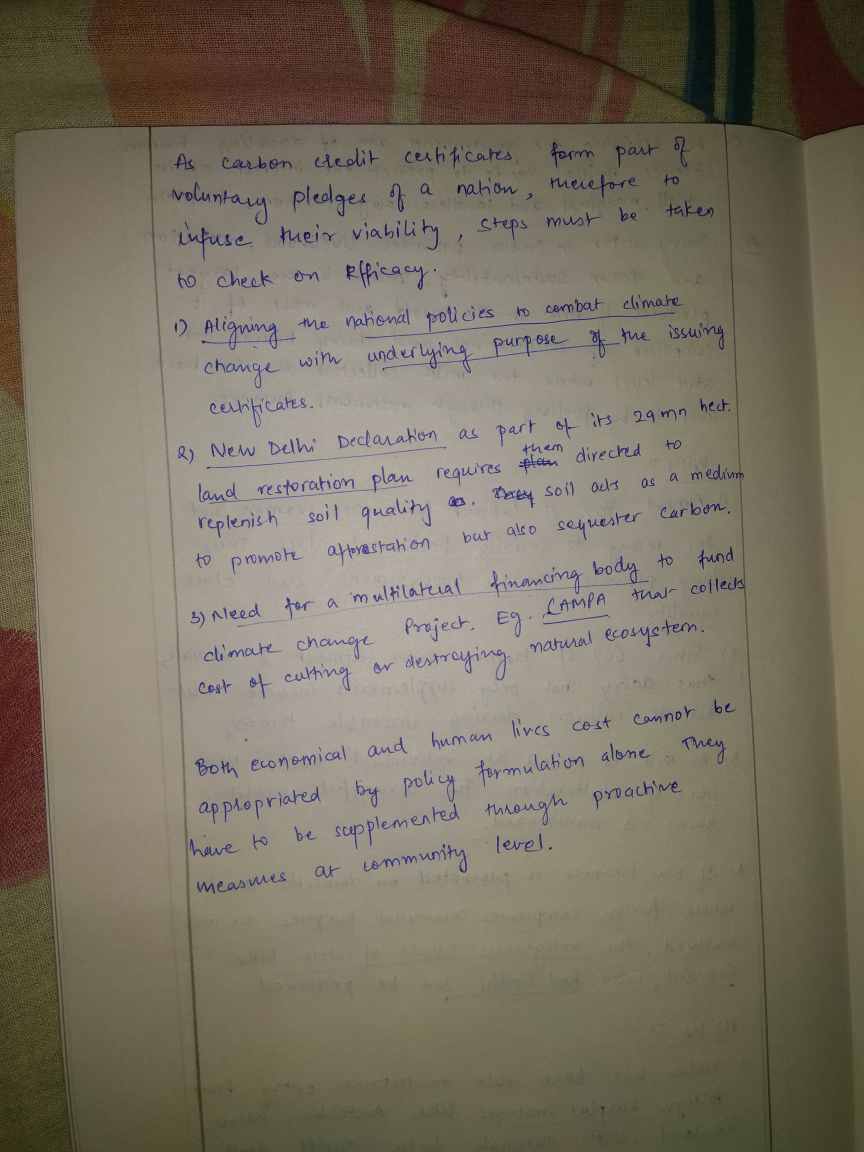 As carbon credit certificates form part of
voluntary pledges of a nation, therefore to
infuse their viability, steps must be taken
to check on Efficacy.
1) Aligning the national policies to combat climate
change with underlying purpose of the issuing
certificates.
2) New Delhi Declaration as part of its 29 mn hect.
land restoration plan requires them directed to
replenish soil quality. soil acts as a medium
to promote afforestation but also sequester carbon.
3) Need for a multilateral financing body to fund
climate change Project. Eg. CAMPA that collects
cost of cutting or destroying natural ecosystem.
Both economical and human lives cost cannot be
appropriated by policy formulation alone. They
have to be supplemented through proactive
measures at community level.